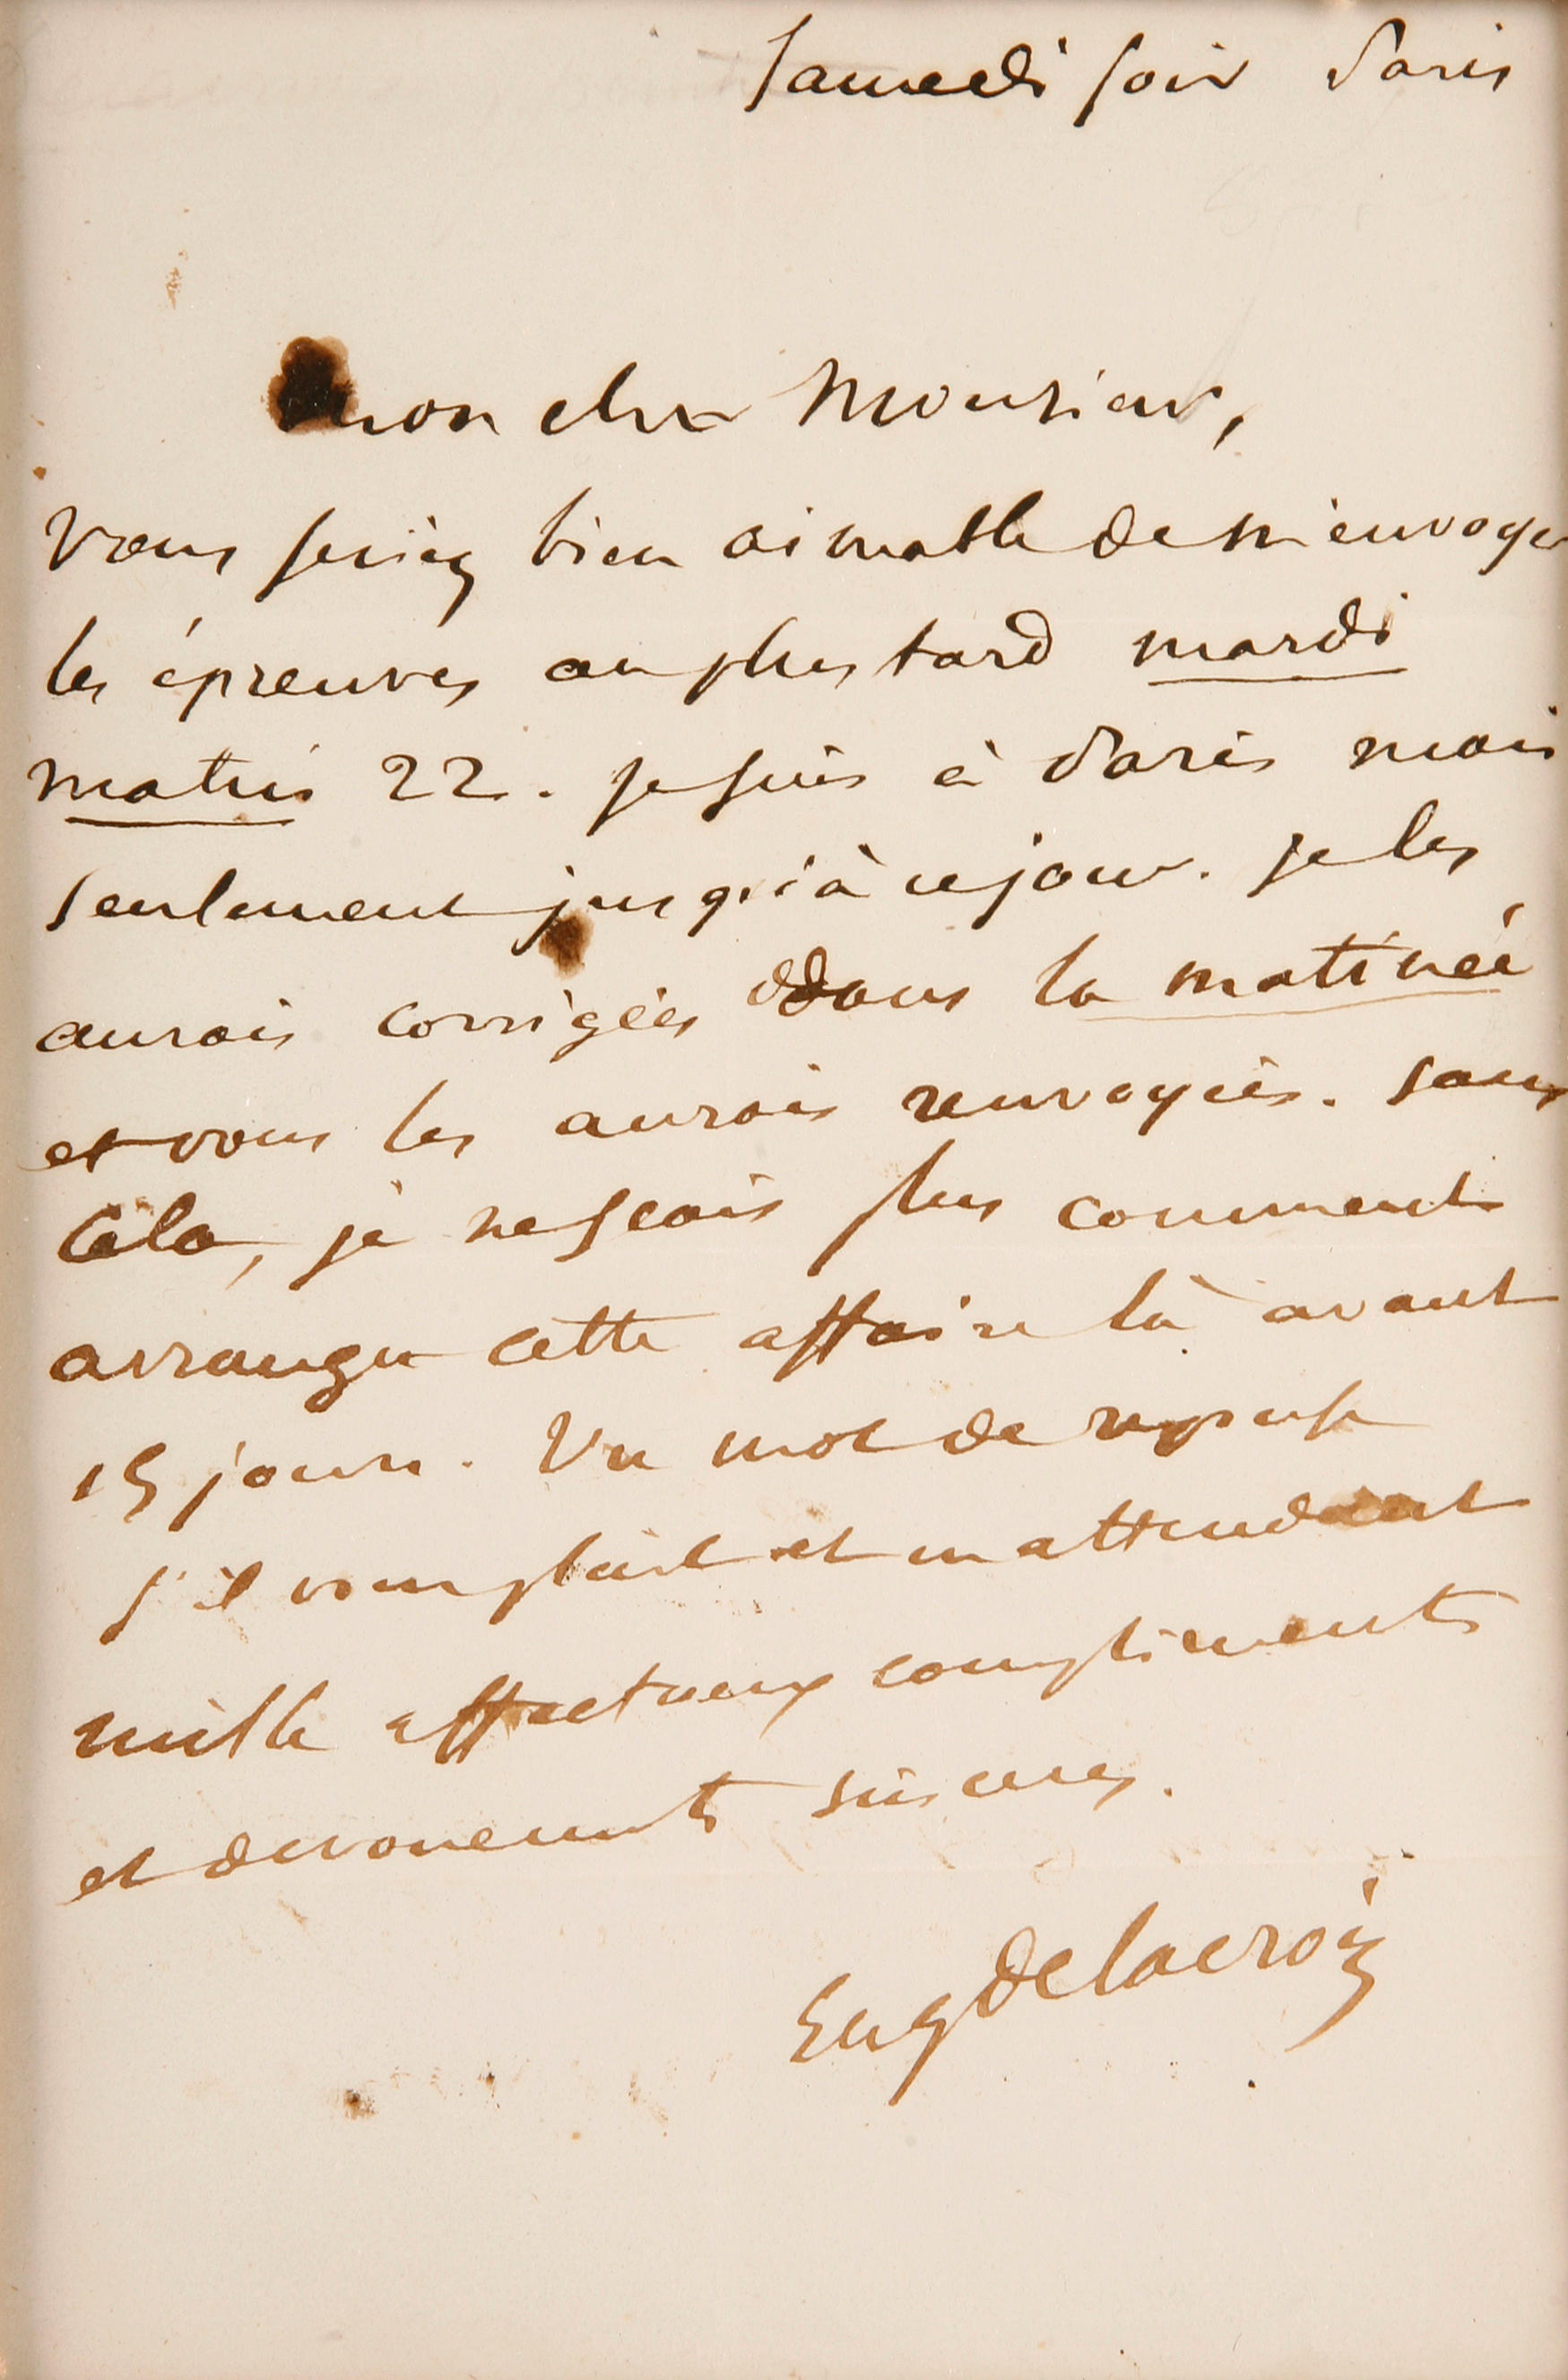 Samedi soir Paris
Mon cher Monsieur,
Vous seriez bien aimable de m'envoyer
les épreuves au plus tard mardi
matin 22. Je suis à Paris mais
seulement jusqu'à ce jour. Je les
aurois corrigées dans la matinée
et vous les aurois renvoyées. Sans
cela, je ne scais plus comment
arranger cette affaire là avant
15 jours. Un mot de reponse
s'il vous plait et en attendant
mille affectueux compliments
et devouements sinceres.
Eug Delacroix